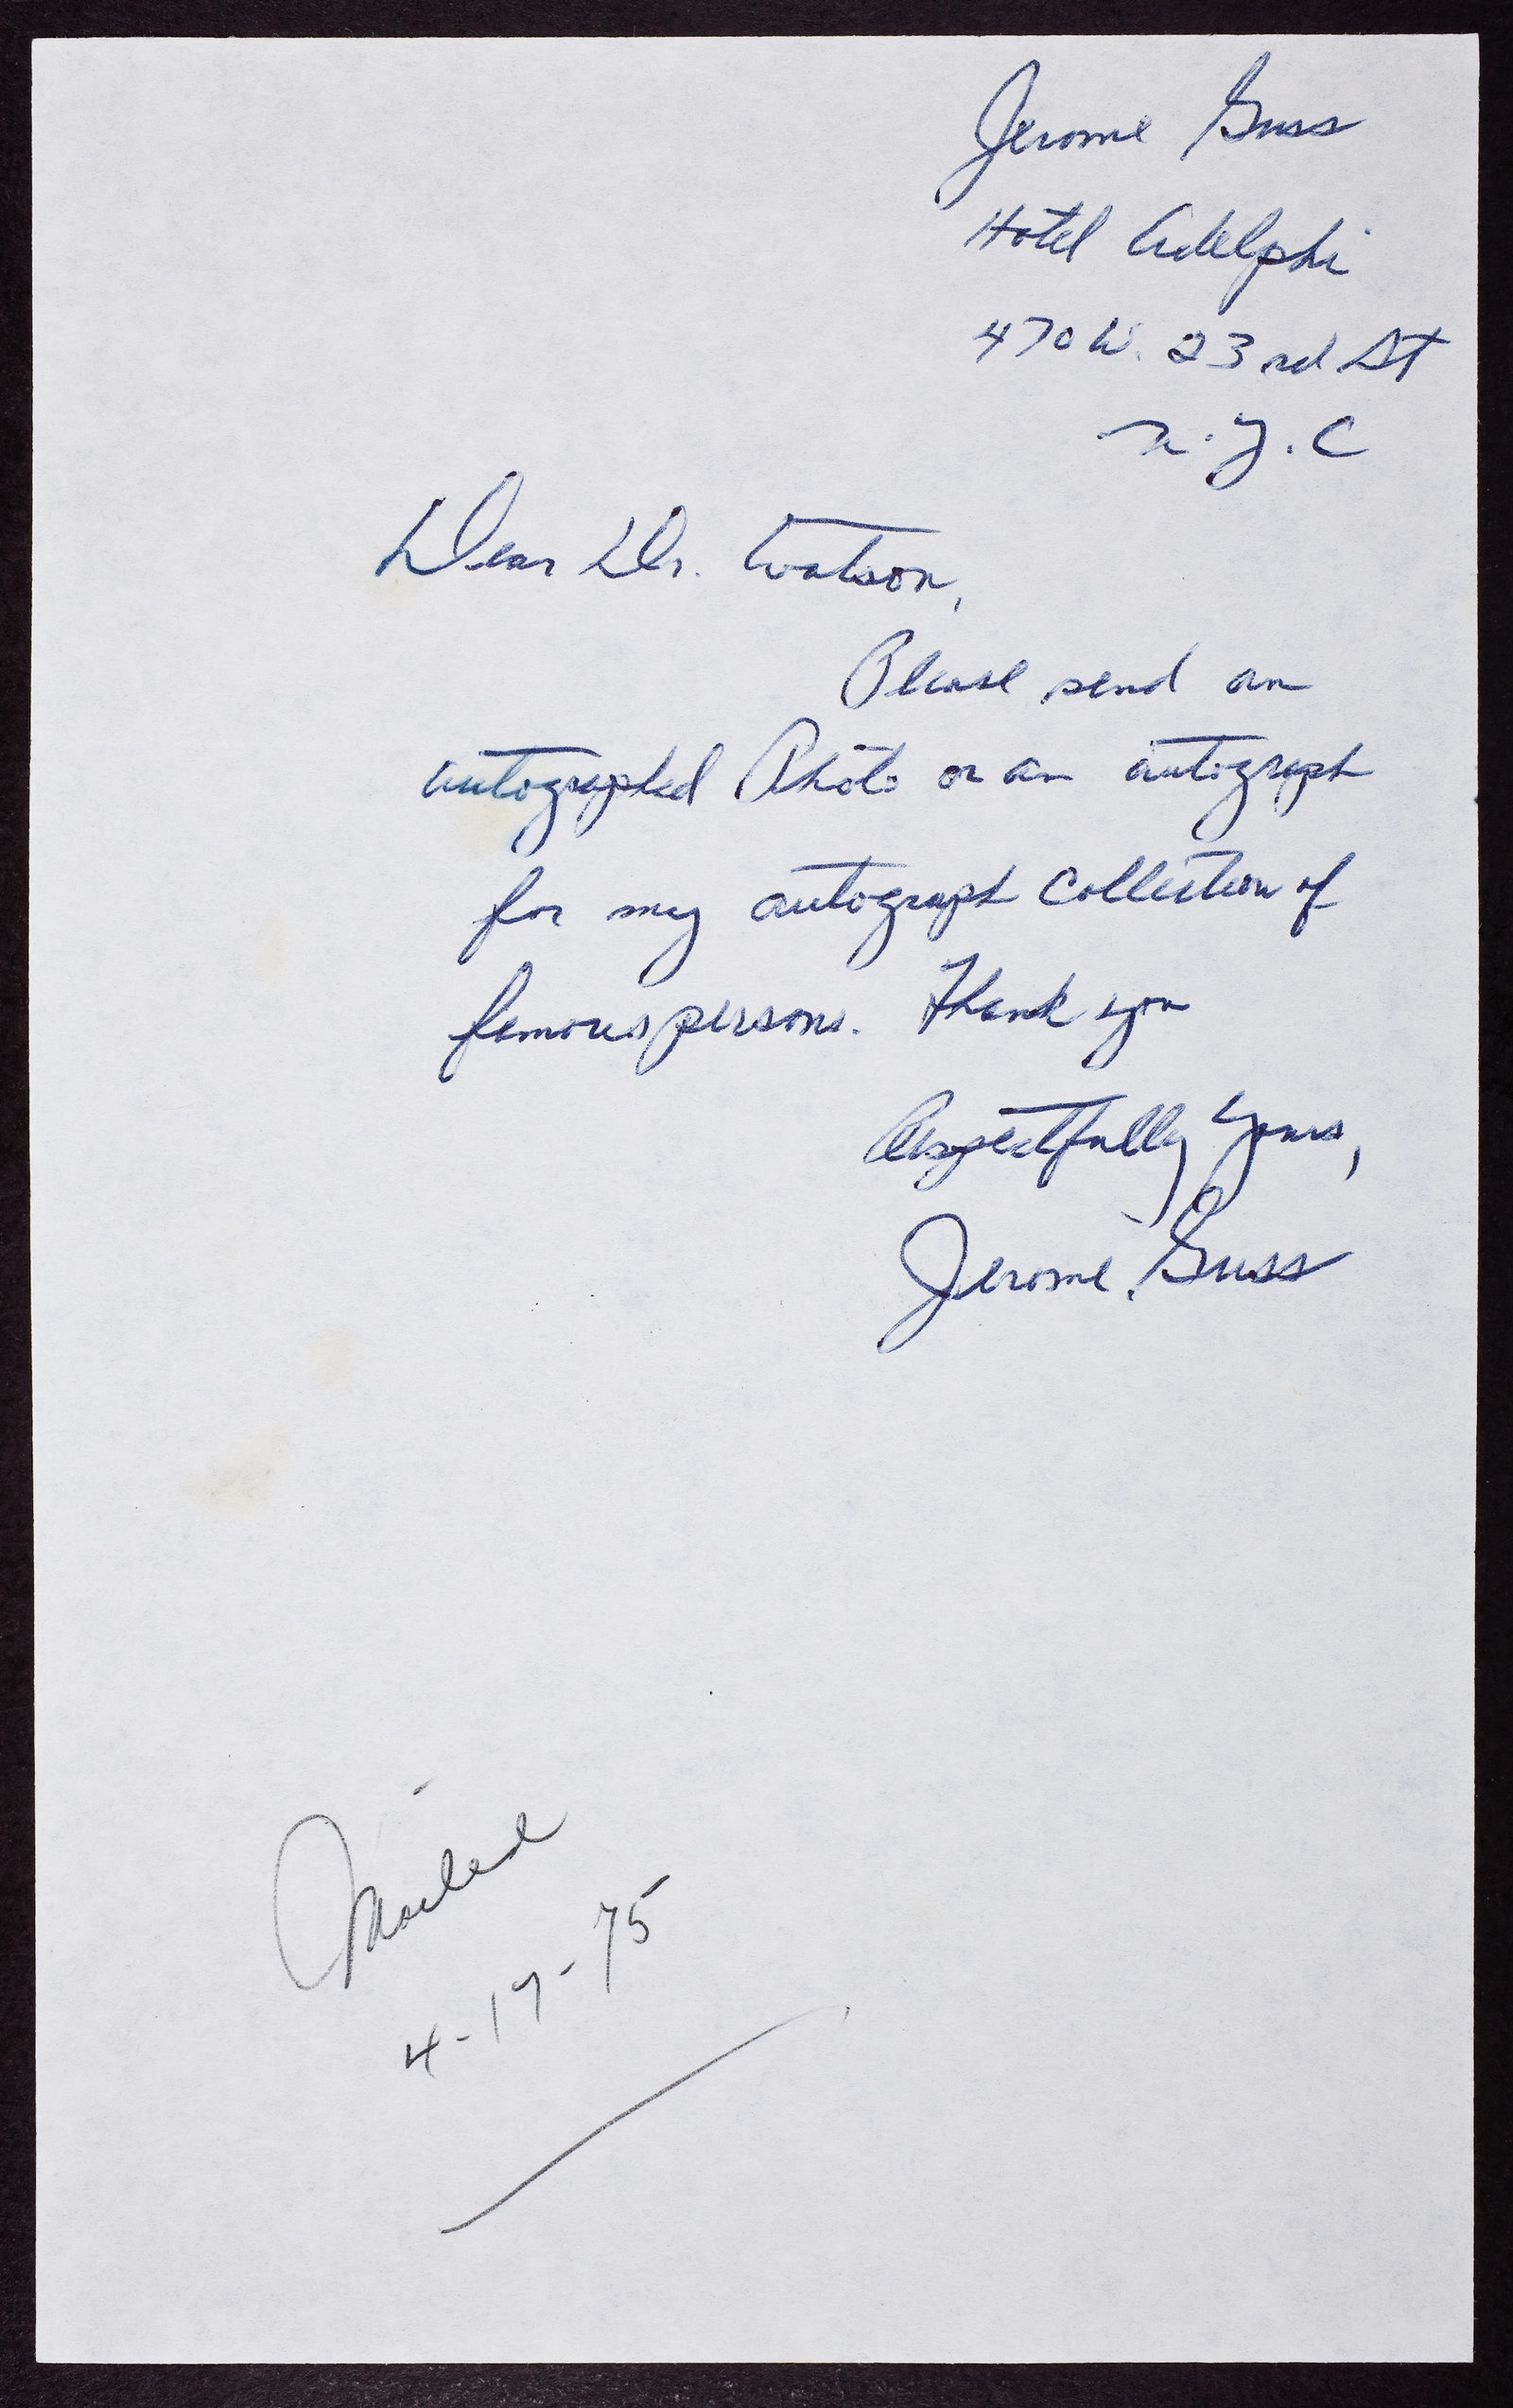 Jerome Guss
Hotel Adelphi
470 W. 23rd St
N.Y.C
Dear Dr. Watson,
Please send an
autographed Photo or an autograph
for my autograph collection of
famous persons. Thank you
Respectfully Yours,
Jerome Guss
Mailed
4-17-75